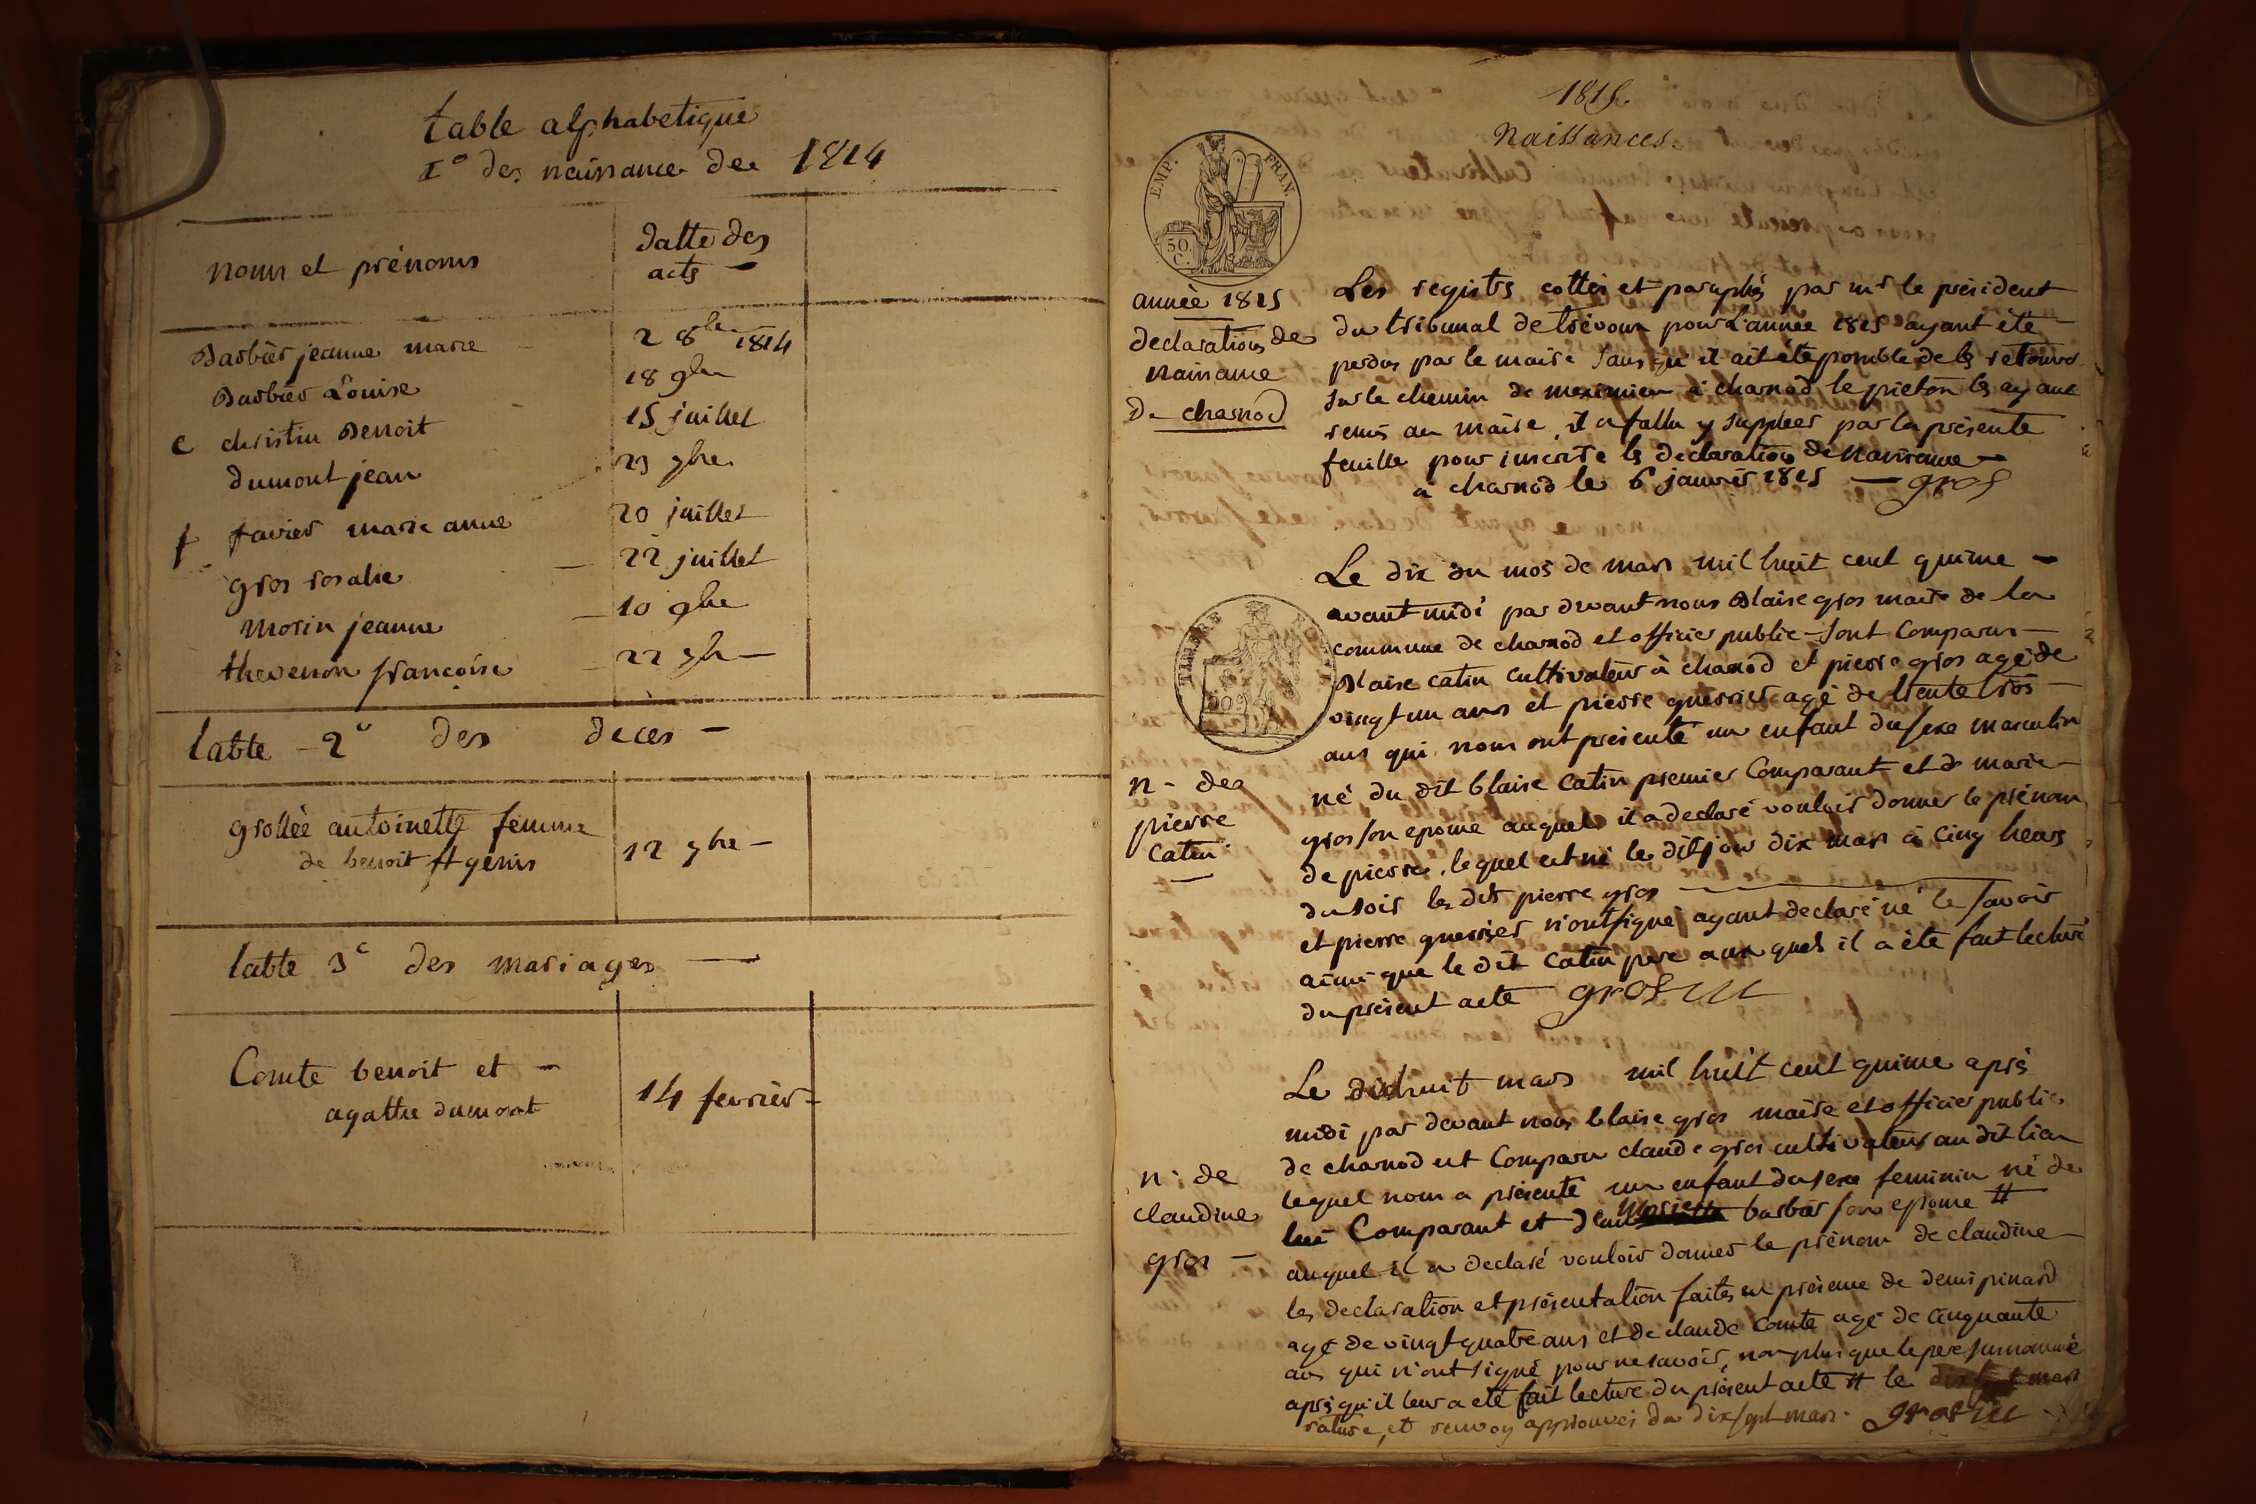 table alphabetique
1° des naissance de 1814
noms et prénoms
datte des
acts
Barbier jeanne marie
2 8bre 1814
Barbier Louise
18 9bre
c christin Benoit
15 juillet
dumont jean
23 7bre
f favier marie anne
20 juillet
gros rosalie
22 juillet
morin jeanne
10 9bre
thevenon françoise
22 7bre
table 2e des deces
grollée antoinette femme
de benoit st genis
12 7bre
table 3e des mariages
Comte benoit et
agathe dumont
14 fevrier
1815
Naissances
EMP. FRAN.
50 C.
année 1815
declarations de
naissance
De charnod
Les registrs cottés et paraphés par mr le président
du tribunal de trévoux pour l'année 1815 ayant été
perdus par le maire sans qu'il ait été possible de les retouver
sur le chemin de meximieu à charnod le pieton les ayant
remis au maire, il a fallu y suppléer par la présente
feuille pour inscrire les declaration de naissance
a charnod le 6 janvier 1815 gros
Le dix du mois de mars mil huit cent quinze
avant midi par devant nous Blaise gros maire de la
commune de charnod et officier public sont Comparus
TIMBRE
Blaise catin cultivateur à charnod et pierre gros agé de
vingt un ans et pierre guerrier agé de trente trois
ans qui nous ont présenté un enfant du sexe masculin
n - de
pierre
catin
né du dit blaise catin premier Comparant et de marie
gros son epouse auquel il a declaré vouloir donner le prénom
de pierre, lequel est né le dit jour dix mars à cinq heurs
du soir les dits pierre gros
et pierre guerrier n'ont signé ayant declaré ne le savoir
ainsi que le dit catin pere aux quels il a été fait lecture
du présent acte gros m
Le dixhuit mars mil huit cent quinze après
midi par devant nous blaise gros maire et officier public
n. de
claudine
gros
de charnod est Comparu claude gros cultivateur au dit lieu
lequel nous a présenté un enfant du sexe feminin né de
lui Comparant et de barbier son epouse #
auquel il a declaré vouloir donner le prénom de claudine
les declaration et présentation faites en présence de denis pinard
agé de vingt quatre ans et de claude comte agé de cinquante
ans qui n'ont signé pour ne savoir, non plus que le pere surnommé
après qu'il leur a été fait lecture du présent acte # le mars
rature, et renvoy approuvés du dix sept mars. gros m